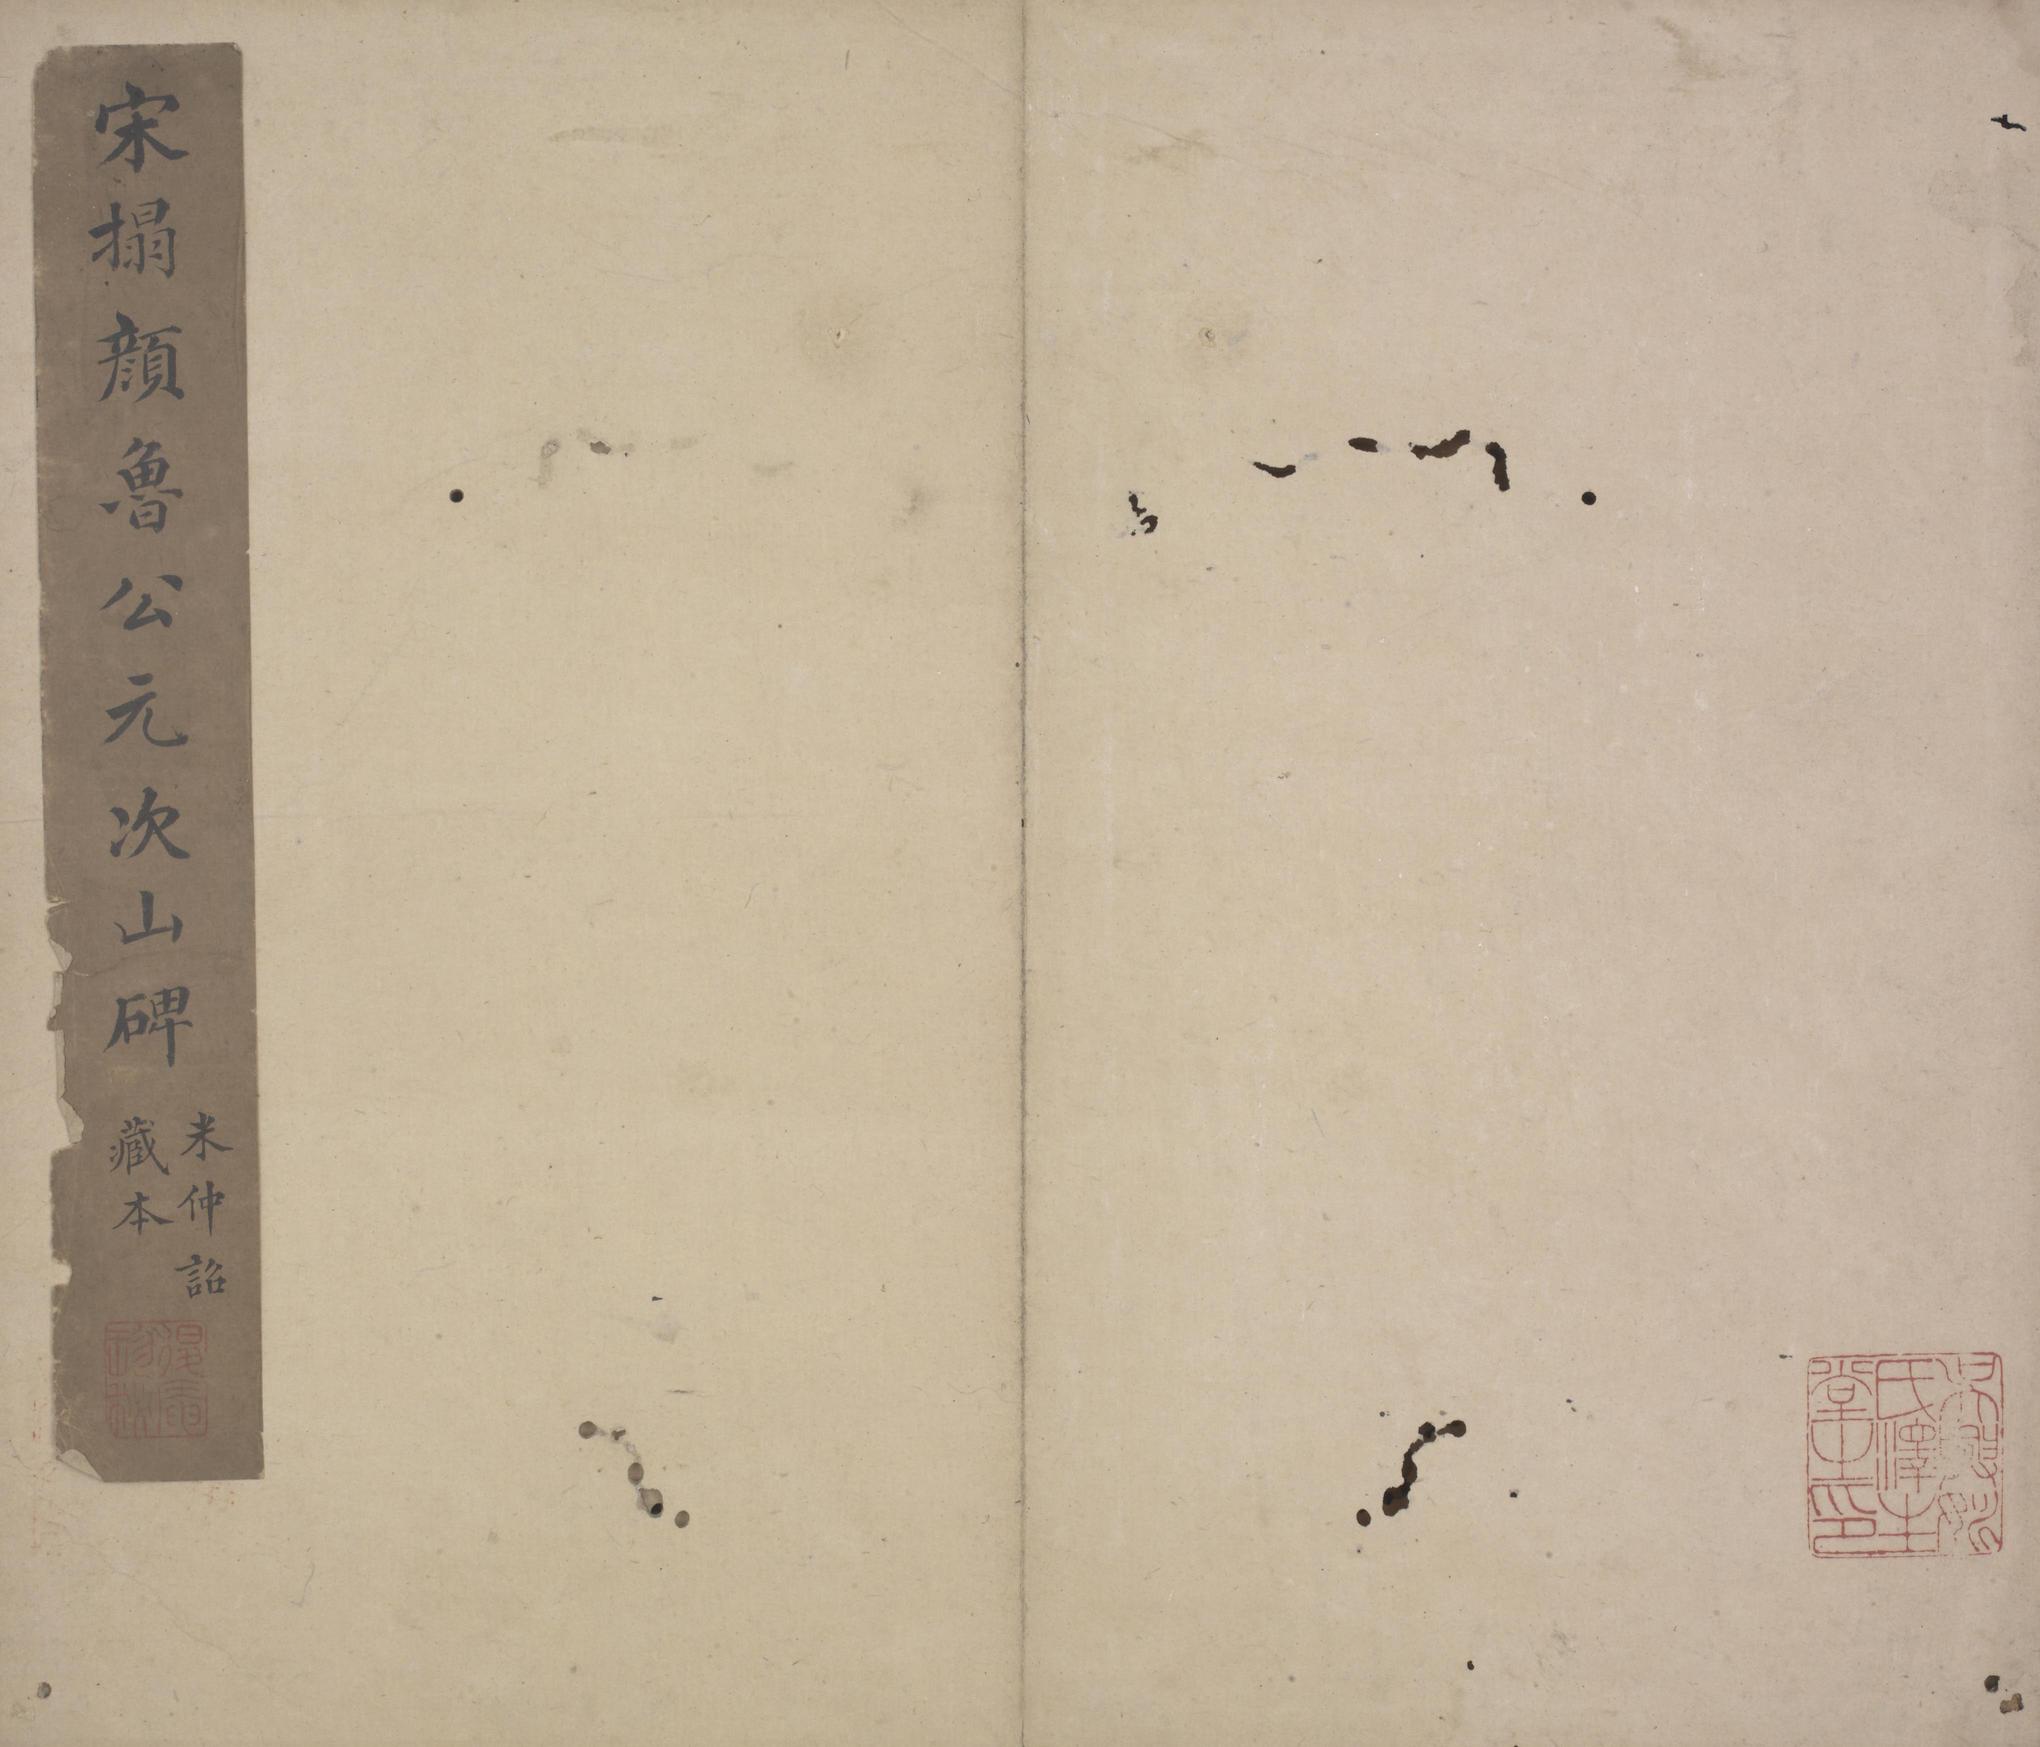 宋搨顔魯公元次山碑
米仲詔
藏本